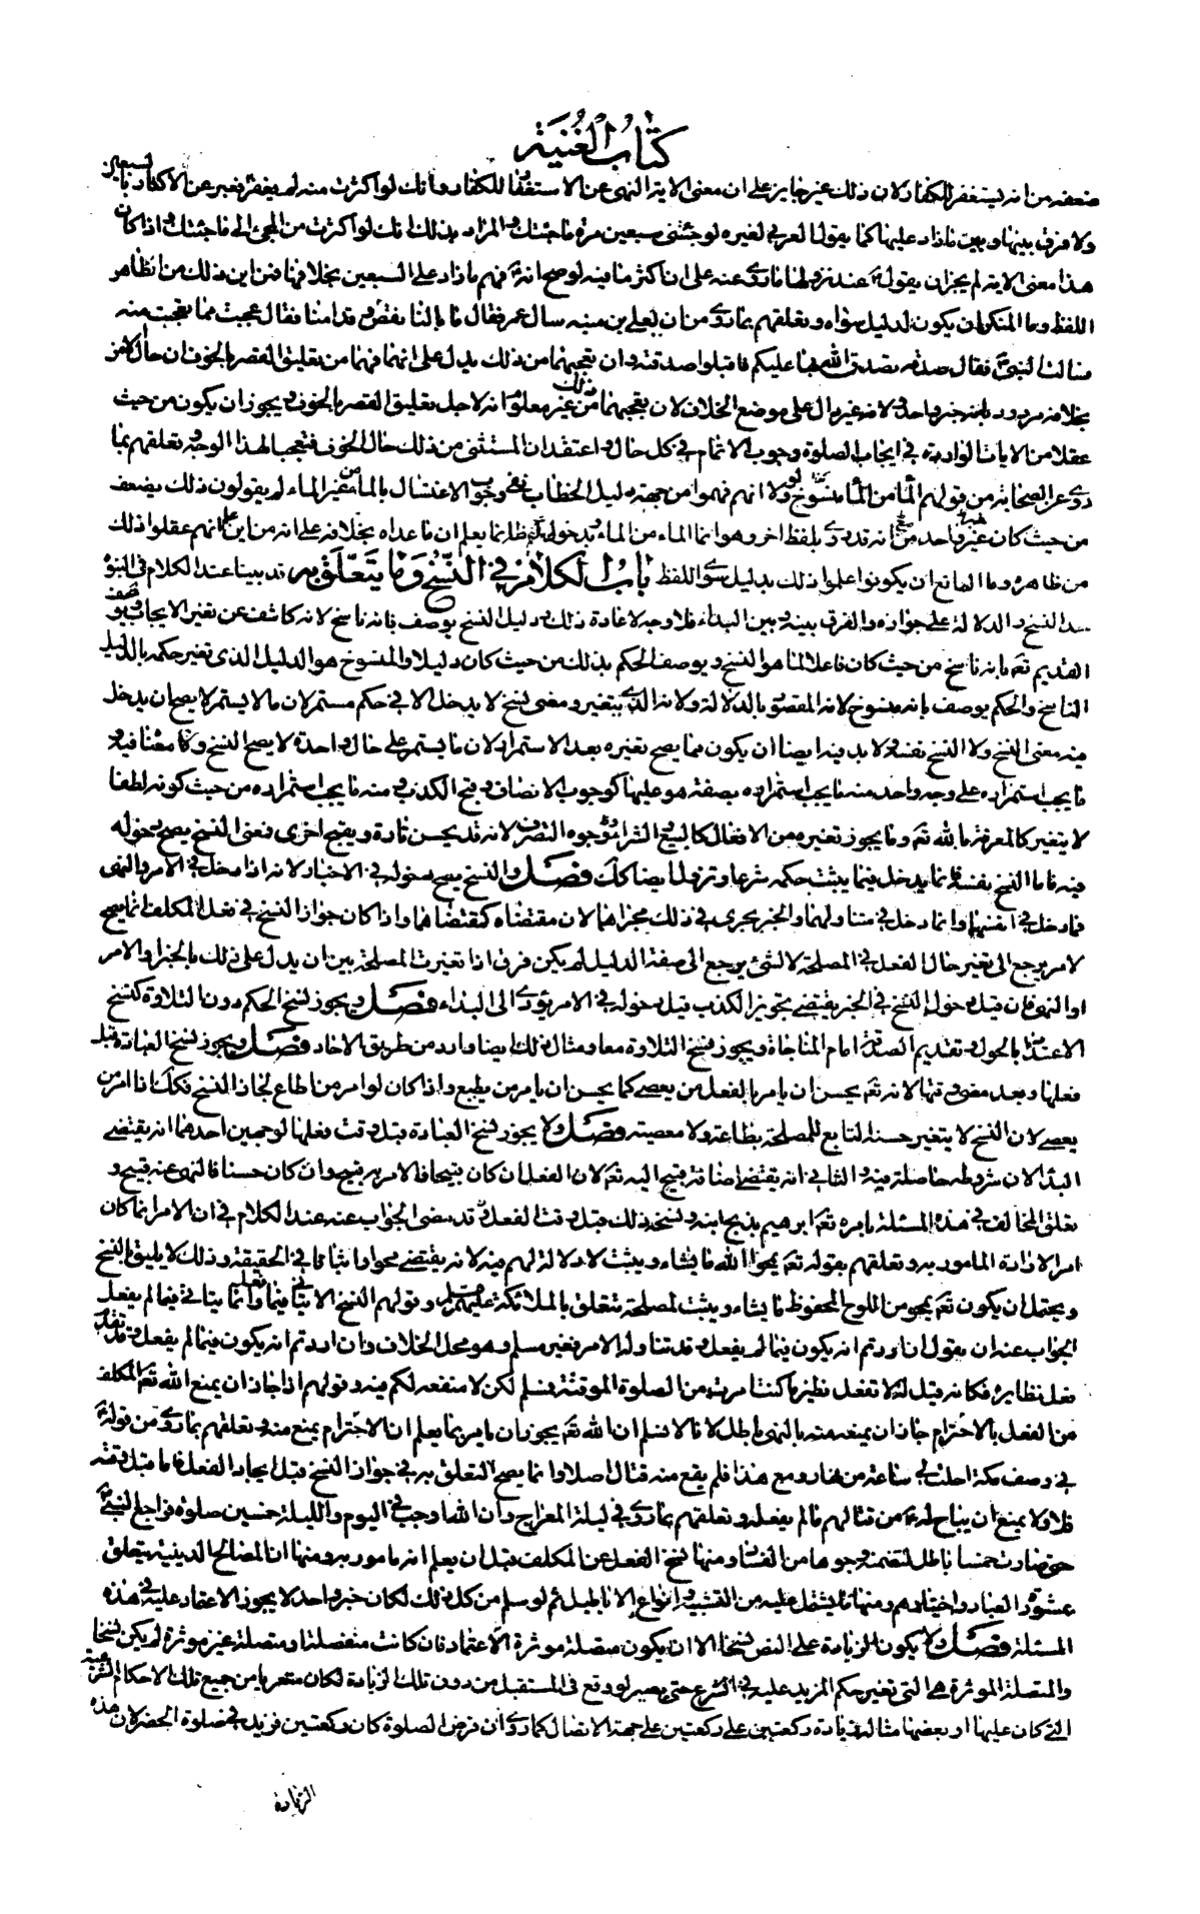 كتاب الغنية
ضعفه من انه يستغفر للكفار لان ذلك غير جايز على ان معنى الاية النهى عن الاستغفار للكفار وانك لو اكثرت منه لم يغفر فعبر عن الاكثار بالسبعين
ولا فرق بينها وبين ما زاد عليها كما يقول العربي لغيره لو جئتنى سبعين مرة ما جئتك والمراد بذلك انك لو اكثرت من المجئ الى ما جئتك واذا كان
هذا معنى الاية لم يجز ان يقول ع عند نزولها ما روى عنه على ان اكثر ما فيه لو صح انه ع فهم ما زاد على السبعين بخلافها فمن اين ذلك من ظاهر
اللفظ وما المنكر ان يكون لدليل سواه وتعلقهم بما روى من ان يعلى بن منيه سال عمر فقال ما بالنا نقصر وقد امنا فقال عجبت مما تعجبت منه
فسالت النبى ص فقال صدقة تصدق الله بها عليكم فاقبلوا صدقته وان تعجبهما من ذلك يدل على انهما فهما من تعليق القصر بالخوف ان حال الامن
بخلافه مردود بانه خبر واحد ولانه غير دال على موضع الخلاف لان تعجبهما من ذلك غير معلوم انه لاجل تعليق القصر بالخوف ويجوز ان يكون من حيث
عقلا من الايات الواردة فى ايجاب الصلوة وجوب الاتمام فى كل حال واعتقدا ان المستثنى من ذلك حال الخوف فتعجبا لهذا الوجه وتعلقهم بما
روى عن الصحابة من قولهم الماء من الماء منسوخ ولولا انهم فهموا من جهة دليل الخطاب نفى وجوب الاغتسال بالماء من غير الماء لم يقولون ذلك يضعف
من حيث كان خبر واحد من انه قد روى بلفظ اخر وهو انما الماء من الماء وبدخول انما يعلم ان ما عداه بخلافه على انه من اين علم انهم عقلوا ذلك
من ظاهره وما المانع ان يكونوا علموا ذلك بدليل سوى اللفظ باب الكلام فى النسخ وما يتعلق به قد بينا عند الكلام فى النبوة
حد النسخ والدلالة على جوازه والفرق بينه وبين البداء فلا وجه لاعادة ذلك ودليل النسخ يوصف بانه ناسخ لانه كاشف عن تغير الايجاب ويوصف
القديم تعم بانه ناسخ من حيث كان فاعلا لما هو النسخ ويوصف الحكم بذلك من حيث كان دليلا والمنسوخ هو الدليل الذى تغير حكمه بالدليل
الناسخ والحكم يوصف بانه منسوخ لانه المقصود بالدلالة ولانه الذى يتغير ومعنى نسخ لا يدخل الا فى حكم مستمر لان ما لا يستمر لا يصح ان يدخل
فيه معنى النسخ ولا النسخ نفسه ولا بد فيه ايضا ان يكون مما يصح تغيره بعد الاستمرار لان ما يستمر على حال واحدة لا يصح النسخ ولا معناه فيه و
ما يجب استمراره على وجه واحد منه ما يجب استمراره بصفة هو عليها كوجوب الانصاف وقبح الكذب ومنه ما يجب استمراره من حيث كونه لطفا
لا يتغير كالمعرفة بالله تعم وما يجوز تغيره من الافعال كالبيع والشراء ووجوه التصرف لانه قد يحسن تارة ويقبح اخرى فمعنى النسخ يصح دخوله
فيه فاما النسخ نفسه فانما يدخل فيما يثبت حكمه شرعا وتزول ايضا كك فصل والنسخ يصح دخوله فى الاخبار لانه اذا دخل فى الامر والنهى
فما دخل فى انفسهما وانما دخل فى متناولهما والخبر يجرى فى ذلك مجراهما لان مقتضاه كمقتضاهما واذا كان جواز النسخ فى فعل المكلف انما يصح
لامر يرجع الى تغير حال الفعل فى المصلحة لا لشئ يرجع الى صفة الدليل لم يكن فرق اذا تغيرت المصلحة بين ان يدل على ذلك بالخبر او الامر
او النهى فان قيل دخول النسخ فى الخبر يقتضى تجويز الكذب قيل دخوله فى الامر يؤدى الى البداء فصل ويجوز نسخ الحكم دون التلاوة كنسخ
الاعتداد بالحول وتقديم الصدقة امام المناجاة ويجوز نسخ التلاوة معا ومثال ذلك ايضا وارد من طريق الاحاد فصل ويجوز نسخ العبادة قبل
فعلها وبعد مضى وقتها لانه تعم يحسن ان يامر بالفعل من يعصى كما يحسن ان يامر من يطيع واذا كان لو امر من اطاع لجاز النسخ فكك اذا امر من
يعصى لان النسخ لا يتغير حسنه التابع للمصلحة بطاعة ولا معصية فصل ولا يجوز نسخ العبادة قبل وقت فعلها لوجهين احدهما انه يقتضى
البداء لان شروطه حاصلة فيه والثانى انه يقتضى اضافة قبيح اليه تعم لان الفعل ان كان قبيحا فالامر به قبيح وان كان حسنا فالنهى عنه قبيح و
تعلق المخالف فى هذه المسئلة بامره تعم ابرهيم بذبح ابنه ونسخ ذلك قبل وقت الفعل وقد مضى الجواب عنه عند الكلام فى ان الامر انما كان
امرا لارادة المامور به وتعلقهم بقوله تعم يمحوا الله ما يشاء ويثبت لا دلالة لهم فيه لانه يقتضى محوا واثباتا فى الحقيقة وذلك لا يليق بالنسخ
ويحتمل ان يكون تعم يمحو من اللوح المحفوظ ما يشاء ويثبت لمصلحة تتعلق بالملائكة عليهم السلم وقولهم النسخ لا يتاتى فيما فعل وانما يتاتى فيما لم يفعل
الجواب عنه ان يقول ان اردتم انه يكون فيما لم يفعل وقد تناوله الامر فغير مسلم وهو محل الخلاف وان اردتم انه يكون فيما لم يفعل وقد تقدم
فعل نظايره فكانه قيل له لا تفعل نظير ما كنت امرت من الصلوة الموقتة فمسلم لكن لا منفعة لكم فيه وقولهم اذا جاز ان يمنع الله تعم المكلف
من الفعل بالاخترام جاز ان يمنعه منه بالنهى باطل لانا لا نسلم ان الله تعم يجوز ان يامر بما يعلم ان الاخترام يمنع منه وتعلقهم بما روى من قوله ع
فى وصف مكة احلت لى ساعة من نهار ومع هذا فلم يقع منه قتال اصلا وانما يصح التعلق به فى جواز النسخ قبل ايجاد الفعل فاما قبل وقته
فلا ولا يمنع ان يباح له ع من قتالهم ما لم يفعله وتعلقهم بما روى فى ليلة المعراج وان الله اوجب فى اليوم والليلة خمسين صلوة فراجع النبى ص
حتى صارت خمسا باطل لتضمنه وجوها من الفساد ومنها نسخ الفعل عن المكلف قبل ان يعلم انه مامور به ومنها ان المصالح الدينية يتعلق
بمشورة العباد واختيارهم ومنها ما يشتمل عليه من التشبيه وانواع الاباطيل ثم لو سلم من كل ذلك لكان خبر واحد لا يجوز الاعتماد عليه فى هذه
المسئلة فصل ولا يكون الزيادة على النص نسخا الا ان يكون متصلة موثرة الاعتماد فان كانت منفصلة او متصلة غير موثرة لم يكن نسخا
والمتصلة الموثرة هى التى تغير حكم المزيد عليه فى الشرع حتى يصير لو وقع فى المستقبل من دون تلك الزيادة لكان متعريا من جميع تلك الاحكام الشرعية
التى كان عليها او بعضها مثاله زيادة ركعتين على ركعتين على جهة الاتصال كما روى ان فرض الصلوة كان ركعتين فزيد فى صلوة الحضر لان هذه
الزيادة